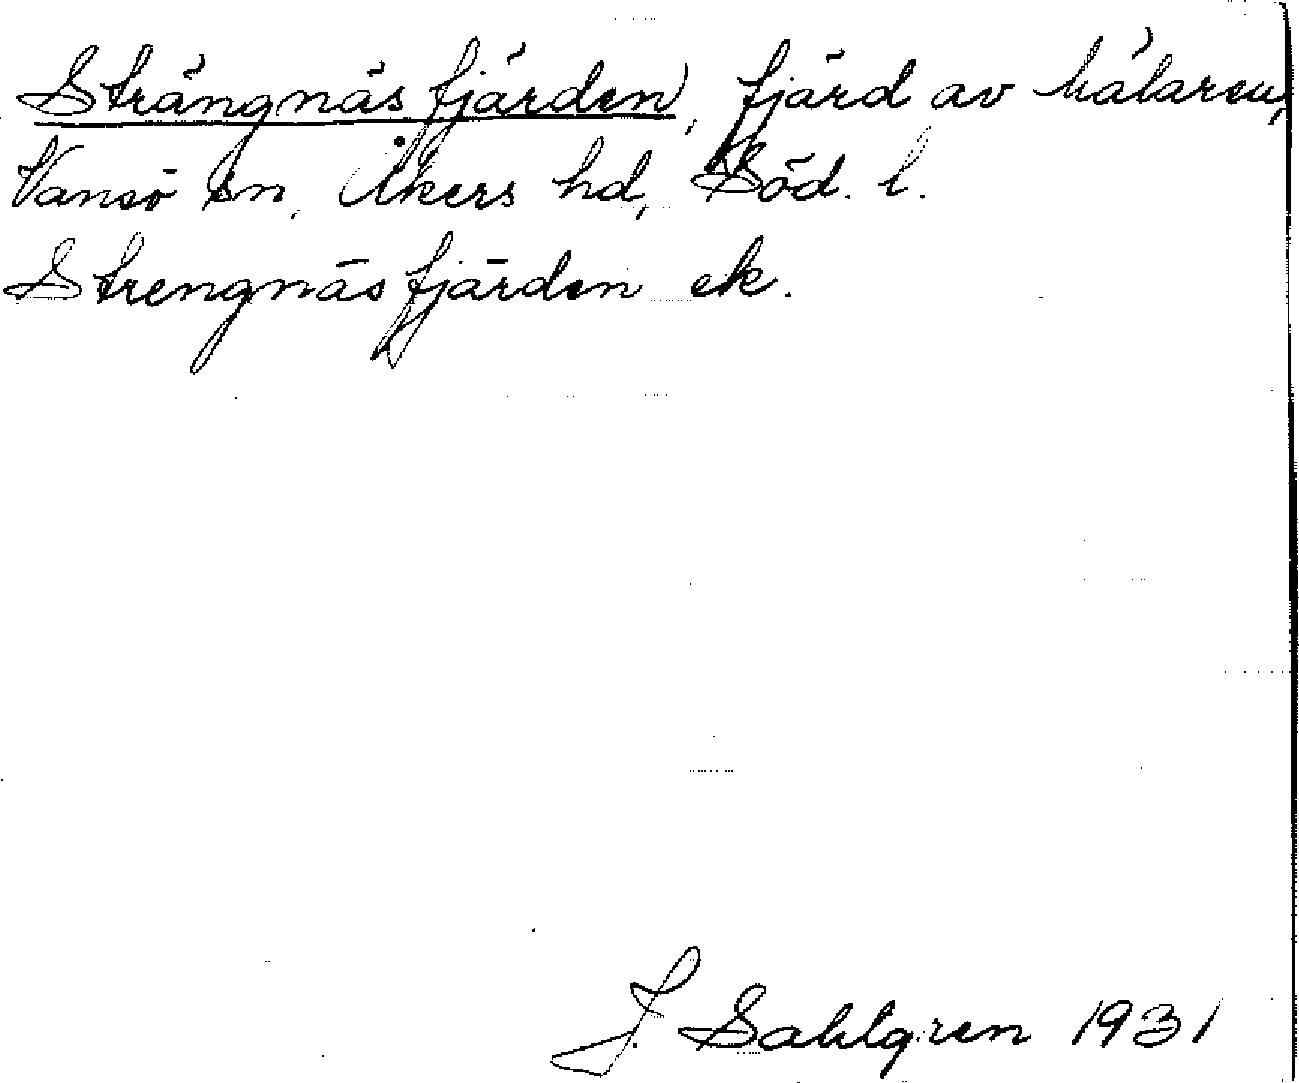 Strängnäsfjärden, fjärd av Mälaren,
Vansö sn, Åkers hd, Söd. l.
Strengnäsfjärden ek.
J. Sahlgren 1931